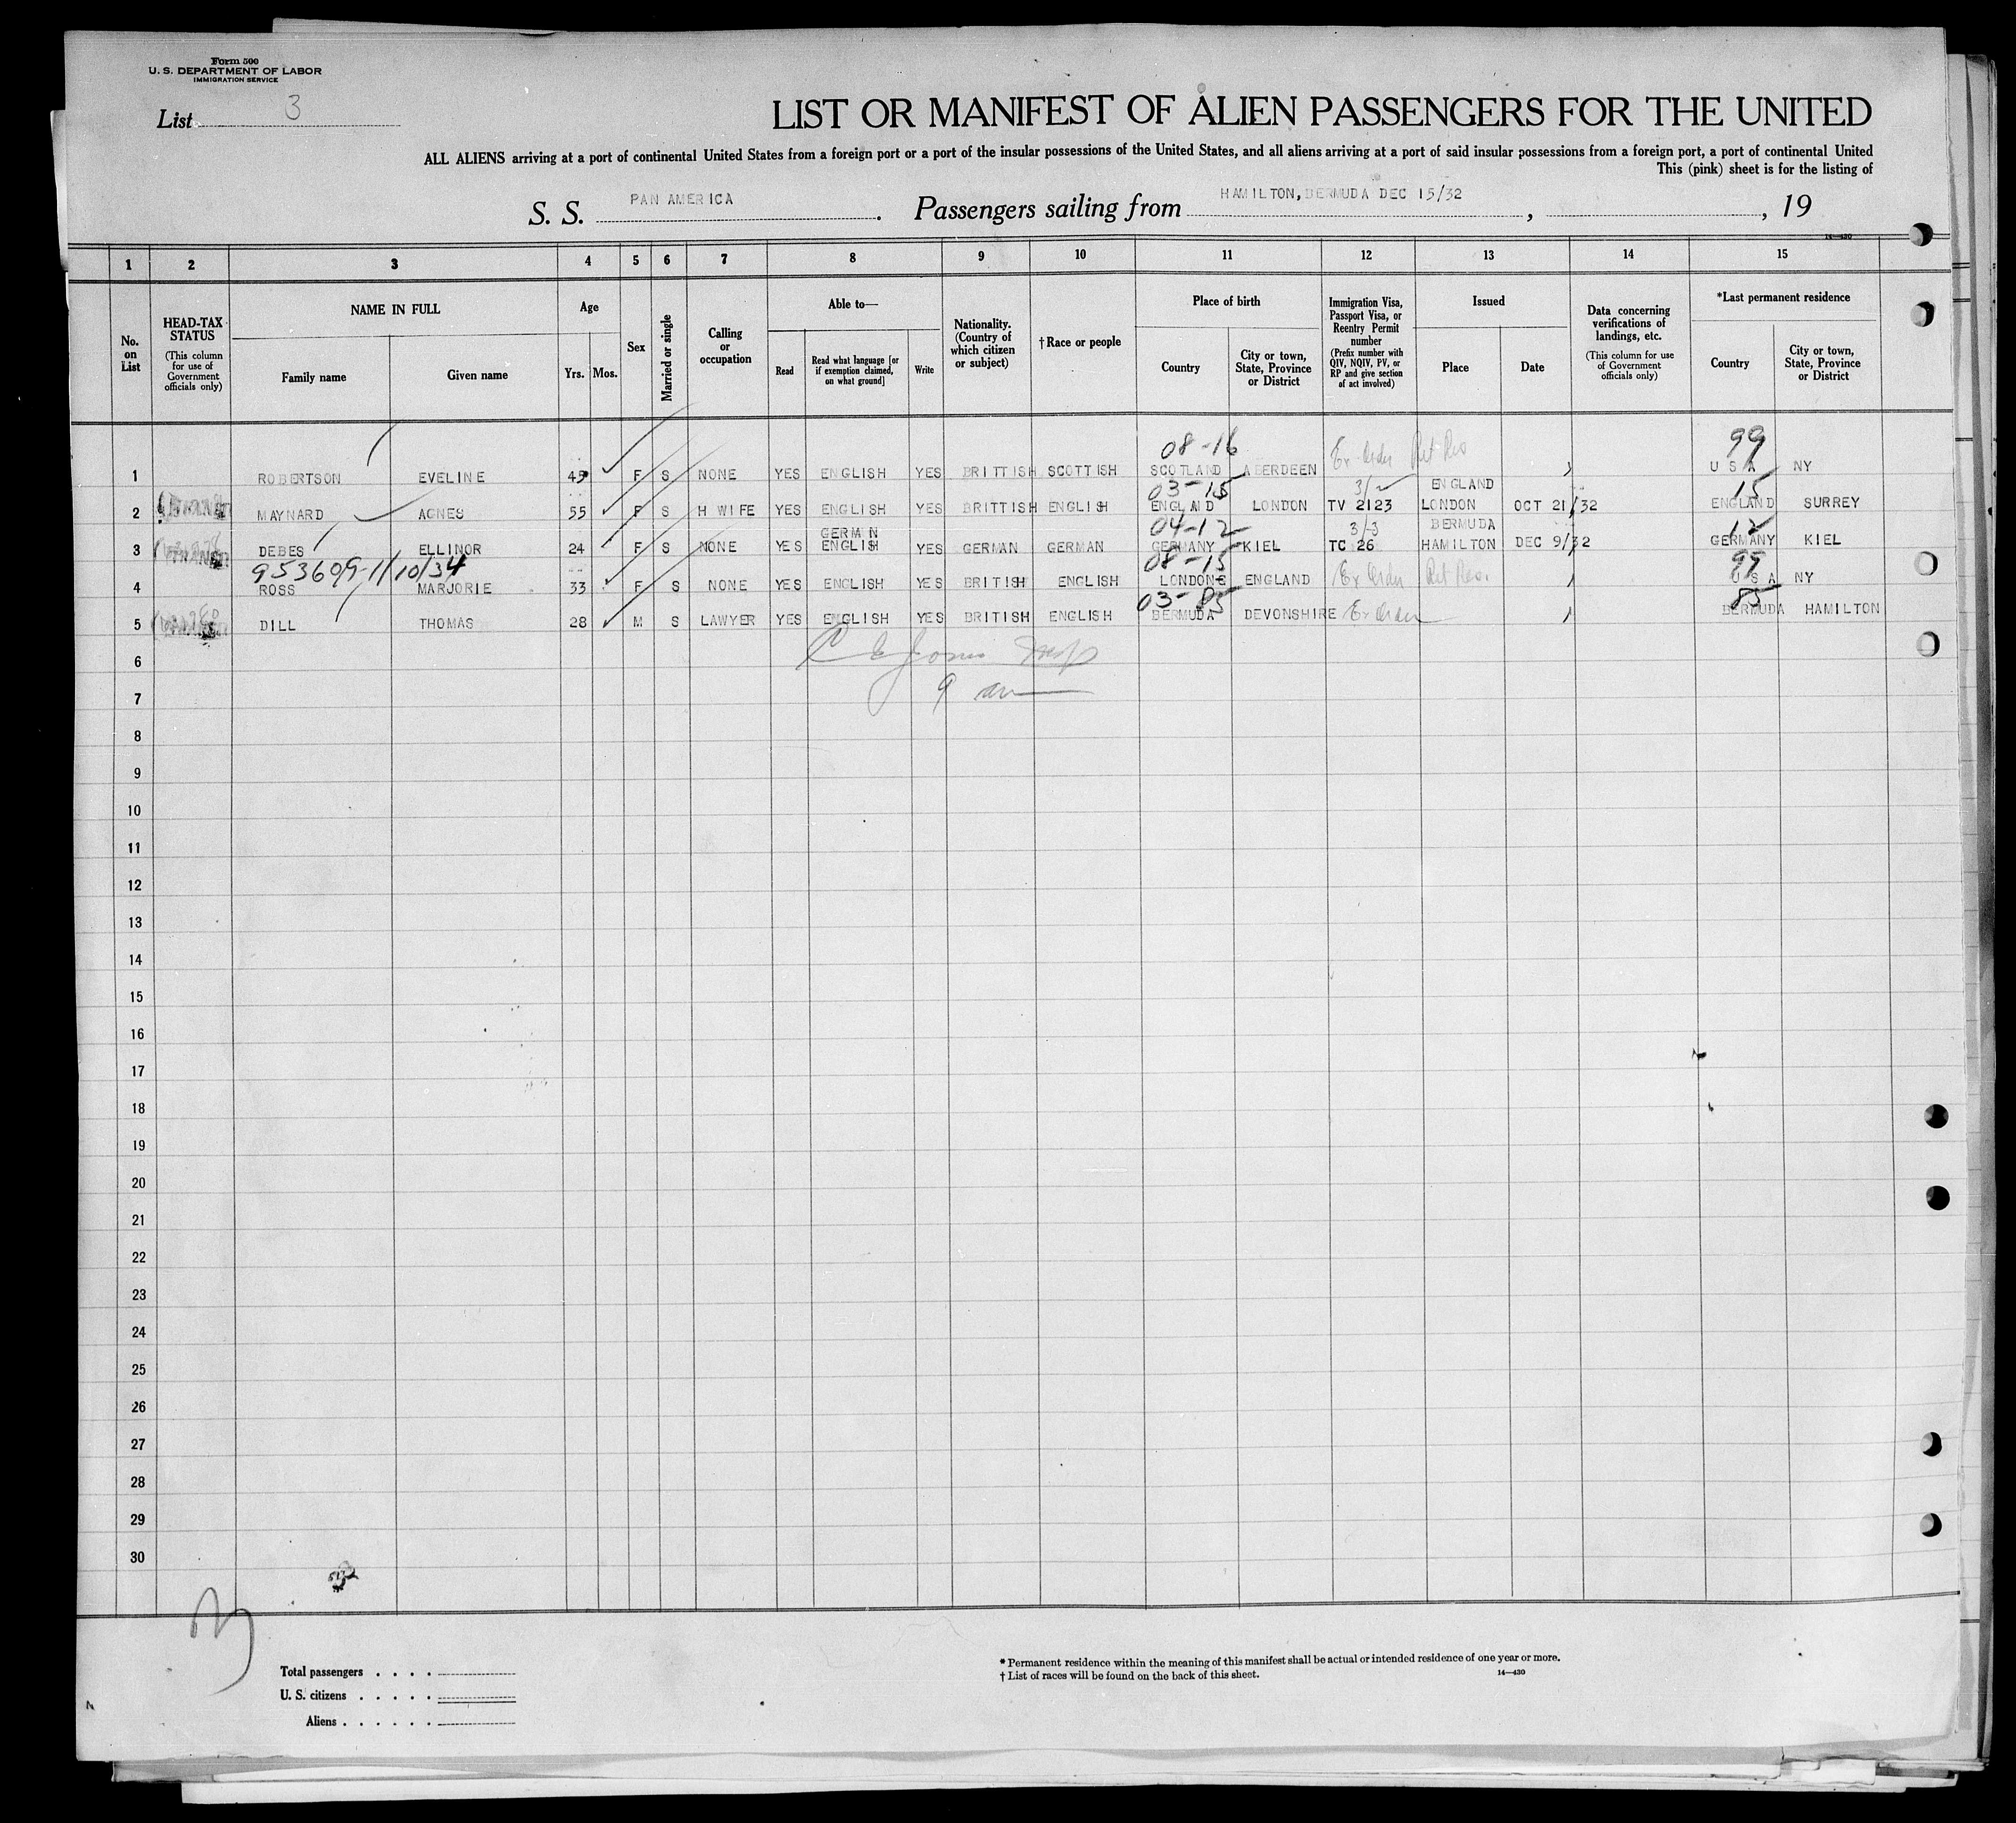 Form 500
U. S. DEPARTMENT OF LABOR
IMMIGRATION SERVICE
List 3
LIST OR MANIFEST OF ALIEN PASSENGERS FOR THE UNITED
ALL ALIENS arriving at a port of continental United States from a foreign port or a port of the insular possessions of the United States, and all aliens arriving at a port of said insular possessions from a foreign port, a port of continental United
This (pink) sheet is for the listing of
S. S. PAN AMERICA . Passengers sailing from HAMILTON, BERMUDA DEC 15/32 , , 19
14—430
1 2 3 4 5 6 7 8 9 10 11 12 13 14 15
No. on List
HEAD-TAX STATUS (This column for use of Government officials only)
NAME IN FULL
Family name Given name
Age
Yrs. Mos.
Sex
Married or single
Calling or occupation
Able to—
Read Read what language [or if exemption claimed, on what ground] Write
Nationality. (Country of which citizen or subject)
†Race or people
Place of birth
Country City or town, State, Province or District
Immigration Visa, Passport Visa, or Reentry Permit number (Prefix number with QIV, NQIV, PV, or RP and give section of act involved)
Issued
Place Date
Data concerning verifications of landings, etc. (This column for use of Government officials only)
*Last permanent residence
Country City or town, State, Province or District
08-16 Ex Order Ret Res 99
1 ROBERTSON EVELINE 45 F S NONE YES ENGLISH YES BRITTISH SCOTTISH SCOTLAND ABERDEEN U S A NY
03-15 3/2 ENGLAND 15
2 MAYNARD AGNES 55 F S H WIFE YES ENGLISH YES BRITTISH ENGLISH ENGLAND LONDON TV 2123 LONDON OCT 21/32 ENGLAND SURREY
GERMAN 04-12 3/3 BERMUDA 12
3 DEBES ELLINOR 24 F S NONE YES ENGLISH YES GERMAN GERMAN GERMANY KIEL TC 26 HAMILTON DEC 9/32 GERMANY KIEL
953609-11/10/34 08-15 99
4 ROSS MARJORIE 33 F S NONE YES ENGLISH YES BRITISH ENGLISH LONDON ENGLAND Ex Order Ret Res. U S A NY
03-85 85
5 DILL THOMAS 28 M S LAWYER YES ENGLISH YES BRITISH ENGLISH BERMUDA DEVONSHIRE Ex Order BERMUDA HAMILTON
6
7
9 am
8
9
10
11
12
13
14
15
16
17
18
19
20
21
22
23
24
25
26
27
28
29
30
Total passengers . . . .
U. S. citizens . . . . .
Aliens . . . . . .
* Permanent residence within the meaning of this manifest shall be actual or intended residence of one year or more.
† List of races will be found on the back of this sheet. 14—430